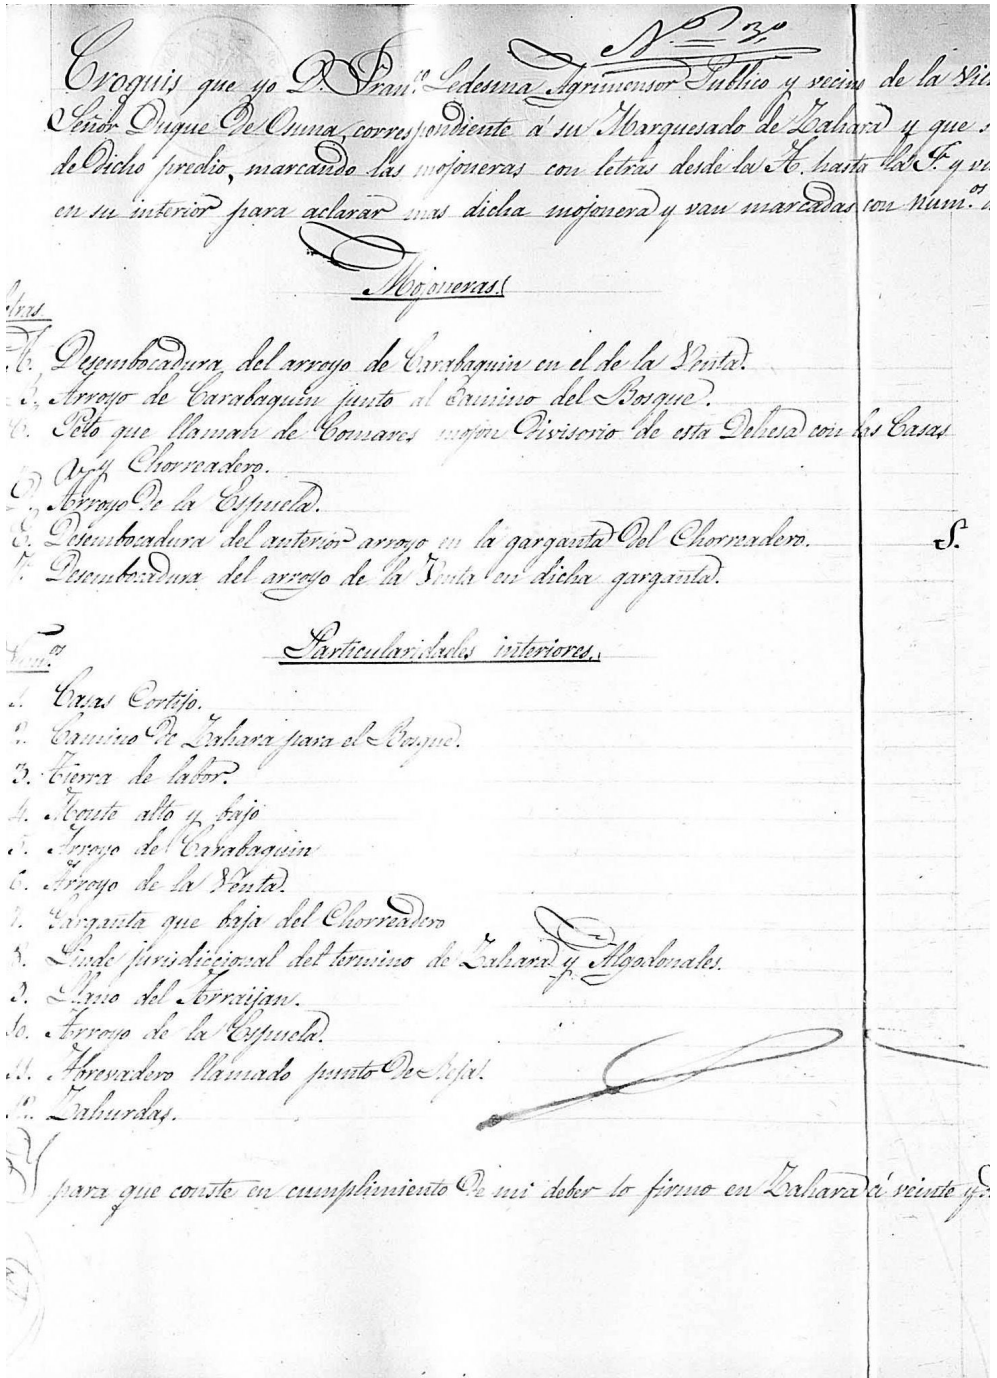 N.º 3º
Croquis que yo D. Fran.co Ledesma Agrimensor Publico y vecino de la Vil
Señor Duque De Osuna, correspondiente á su Marquesado de Zahara y que s
de Dicho predio, marcando las mojoneras con letras desde la A. hasta la F. y va
en su interior para aclarar mas dicha mojonera y van marcadas con num.os
Mojoneras.
etras
A. Desembocadura del arroyo de Carabaquin en el de la Venta.
B. Arroyo de Carabaquin junto al Camino del Bosque.
C. que llaman de Comares mojon Divisorio de esta Dehesa con las Casas
y Chorreadero.
D. Arroyo De la Espuela.
E. Desembocadura del anterior arroyo en la garganta Del Chorreadero.
S.
F. Desembocadura del arroyo de la Venta en dicha garganta.
Num.os
Particularidades interiores.
1. Casas Cortijo.
2. Camino De Zahara para el Bosque.
3. Tierra de labor.
4. Monte alto y bajo
5. Arroyo de Carabaquin
6. Arroyo de la Venta.
7. Garganta que baja del Chorreadero
8. Linde jurisdiccional del termino de Zahara y Algodonales.
9. Llano del Arraijan.
10. Arroyo de la Espuela.
11. Abrevadero llamado punto De
12. Zahurdas.
Y para que conste en cumplimiento De mi deber lo firmo en Zahara á veinte y